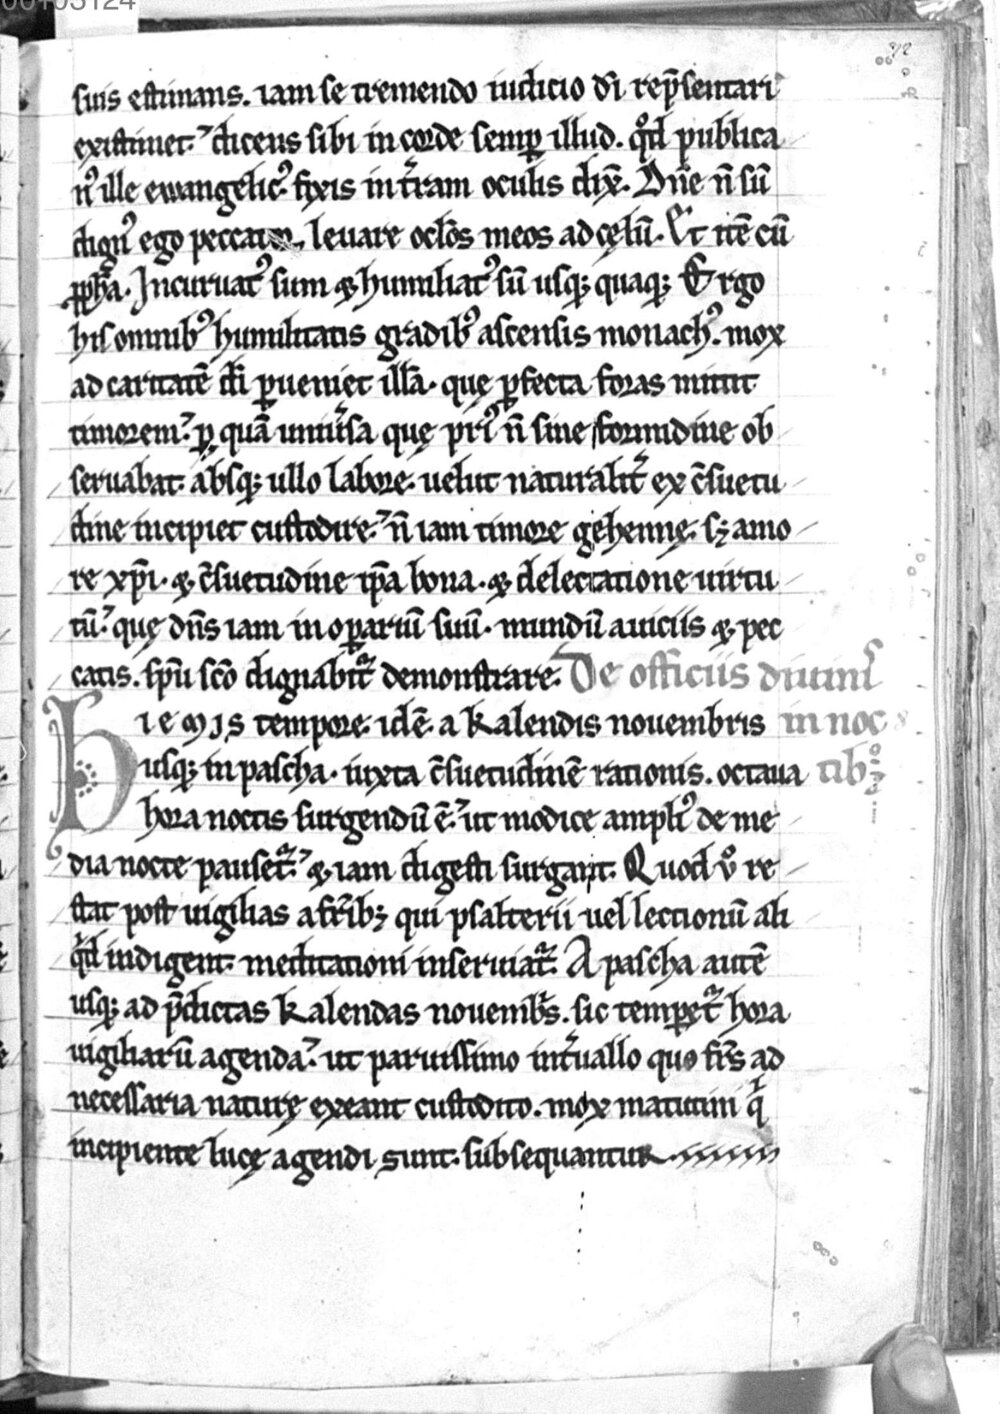 00105124
32
suis estimans. iam se tremendo iudicio dı̄ rep̄sentari
existimet. dicens sibi in corde semꝑ illud. qd̄ publica
nꝰ ille ewangelicꝰ. fixis in t̄ram oculis dix̄. Dn̄e n̄ sū
dignꝰ ego peccator, levare oclōs meos ad cęlū. Et itē cū
ꝓph̄a. Incuruatꝰ sum & humiliatꝰ sū usq; quaq; Ergo
his omnibꝰ humilitatis gradibꝰ ascensis monachꝰ. mox
ad caritatē dı̄ ꝑueniet illā. quę ꝑfecta foras mittit
timorem. ꝑ quā uniūsa quę priꝰ n̄ sine formidine ob
seruabat. absq; ullo labore. uelut naturalit̄ ex c̄suetu
dine incipiet custodire. n̄ iam timore gehennę. sꝫ amo
re xp̄i. & c̄suetudine ip̄a bona. & delectatione uirtu
tū. quę dn̄s iam in oꝑariū suū. mundū a uiciis & pec
catis. sp̄u sc̄o dignabit̄ demonstrare. De officiis diuinis
Hiemis tempore. idē. a kalendis novembris in noc
usq; in pascha. iuxta c̄suetudinē rationis. octaua tibꝰ
hora noctis surgendū ē. ut modice ampliꝰ de me
dia nocte pauset̄. & iam digesti surgant. Quod ū re
stat post uigilias a fr̄ibꝫ qui psalterii uel lectionū ali
qd̄ indigent. meditationi inseruiat̄. A pascha autē
usq; ad p̄dictas kalendas novemb̄s. sic temꝑet̄ hora
uigiliarū agenda. ut paruissimo int̄uallo quo fr̄s ad
necessaria naturę exeant custodito. mox matutini q̄
incipiente lucę agendi sunt. subsequantur.